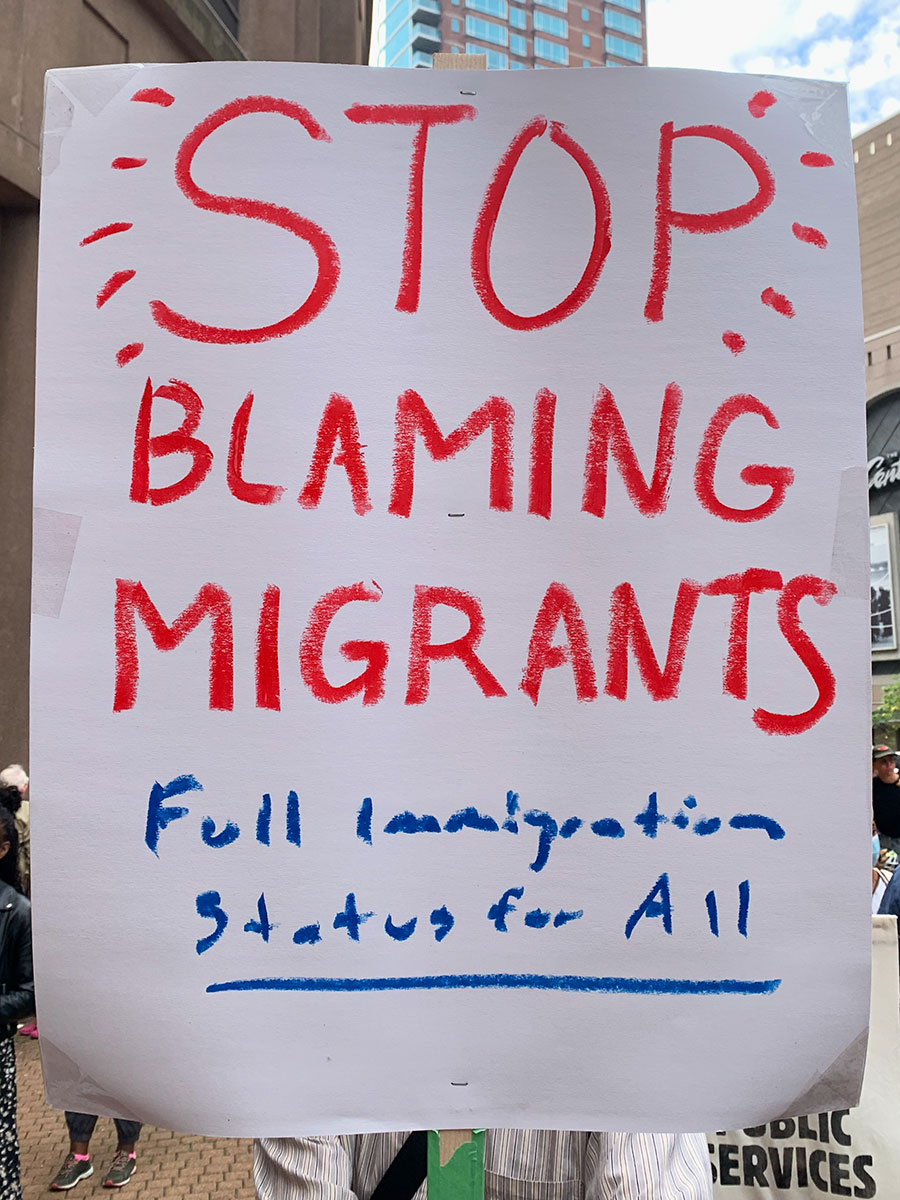 STOP
BLAMING
MIGRANTS
Full Immigration
Status for All
PUBLIC
SERVICES
THE